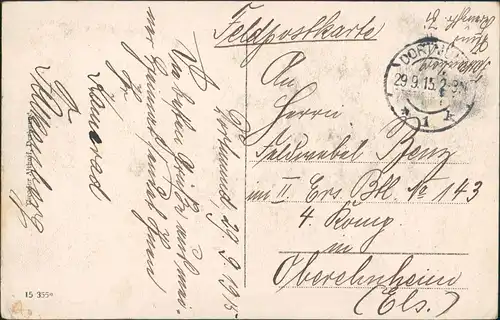 Feldpostkarte
DORTMUND
29.9.15.
* 1 k
An
Herrn
Feldwebel Benz
im II. Ers. Btl. No 143
4. Komp.
in
Oberehnheim
(Els.)
Dortmund 29.9.1915
Die besten Grüße aus mei-
ner Heimat sendet Ihnen
Ihr
Kamerad
15 355